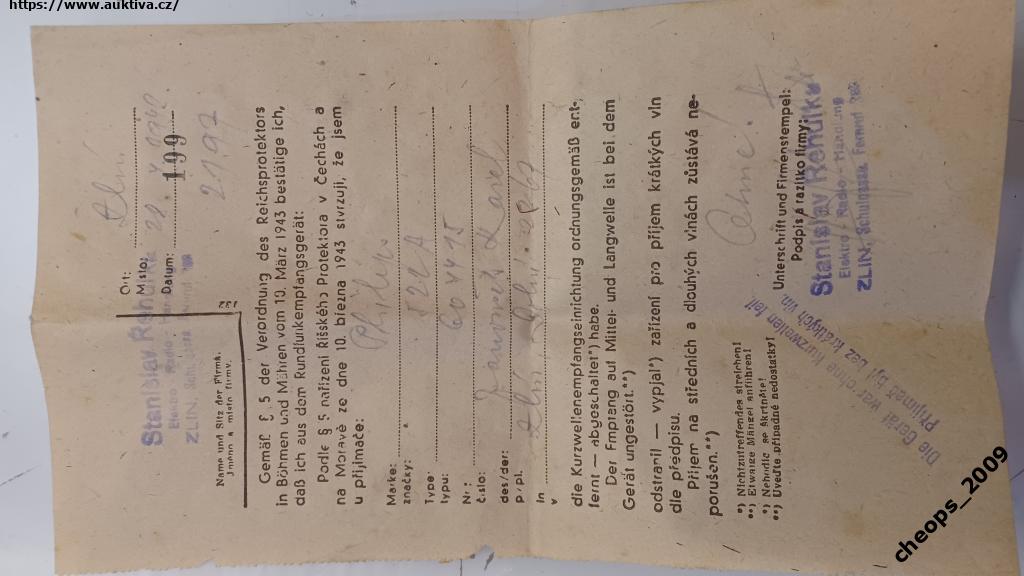 https://www.auktiva.cz/
Ort:
Místo:
Datum:
20. V. 1943
199
2197
Stanislav Rendl
Elektro - Radio
ZLIN,
Name und Sitz der Firma.
Jméno a místo firmy.
Gemäß § 5 der Verordnung des Reichsprotektors
in Böhmen und Mähren vom 10. März 1943 bestätige ich,
daß ich aus dem Rundfunkempfangsgerät:
Podle § 5 nařízení Říšského Protektora v Čechách a
na Moravě ze dne 10. března 1943 stvrzuji, že jsem
u přijímače:
Marke:
značky:
Philips
Type
typu:
522A
Nr.:
číslo:
des/der:
p. pl.
Karel
In
v
die Kurzwellenempfangseinrichtung ordnungsgemäß ent-
fernt — abgeschaltet*) habe.
Der Empfang auf Mittel- und Langwelle ist bei dem
Gerät ungestört.**)
odstranil — vypjal*) zařízení pro příjem krátkých vln
dle předpisu.
Příjem na středních a dlouhých vlnách zůstává ne-
porušen.**)
*) Nichtzutreffendes streichen!
**) Etwaige Mängel anführen!
*) Nehodíc se škrtněte!
**) Uveďte případné nedostatky!
Unterschrift und Firmenstempel:
Podpis a razítko firmy:
Stanislav Rendl
Elektro - Radio - Handlung
ZLIN, Schulgasse
Die Gerät war ohne Kurzwellen teil
Přijímač byl bez krátkých vln.
cheops_2009